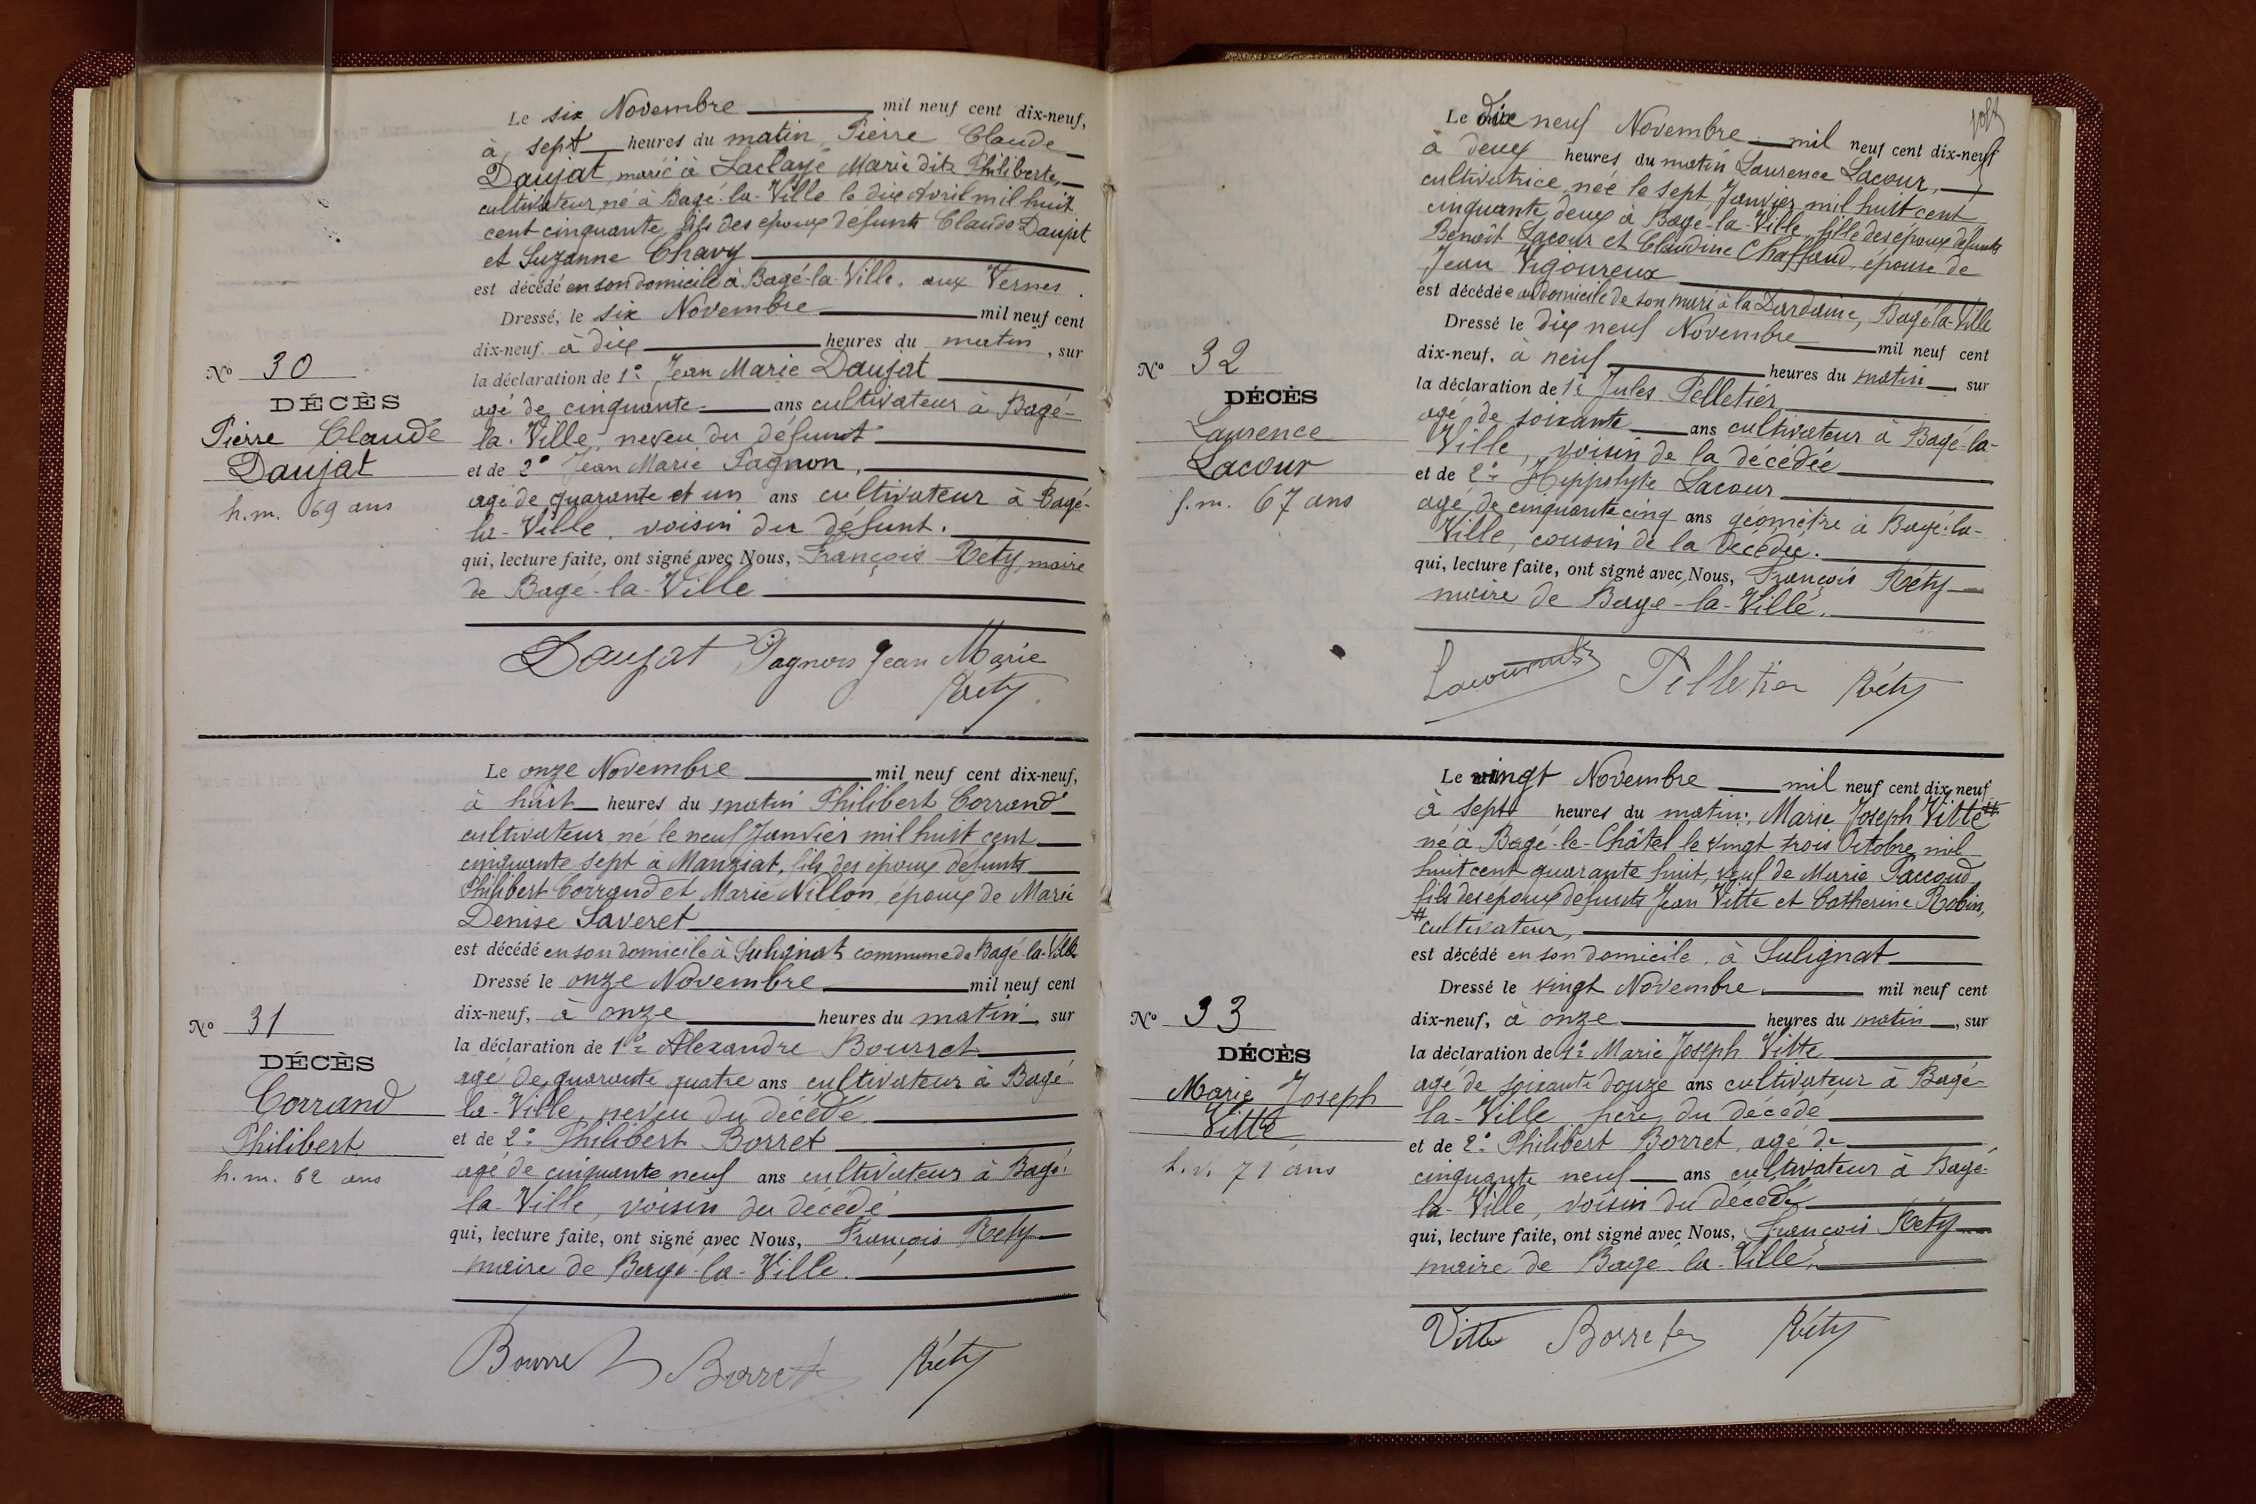 Le six Novembre mil neuf cent dix-neuf,
à sept heures du matin Pierre Claude
Daujat, marié à Laclayé Marie dite Philiberte,
cultivateur, né à Bagé-la-Ville le dix Avril mil huit
cent cinquante, fils des époux défunts Claude Daujat
et Suzanne Chavy
est décédé en son domicile à Bagé-la-Ville, aux Vernes.
Dressé, le six Novembre mil neuf cent
dix-neuf à dix heures du matin, sur
la déclaration de 1° Jean Marie Daujat
agé de cinquante ans cultivateur à Bagé-
la-Ville, neveu du défunt
et de 2° Jean Marie Pagnon,
agé de quarante et un ans cultivateur à Bagé-
la-Ville, voisin du défunt.
qui, lecture faite, ont signé avec Nous, François Réty, maire
de Bagé-la-Ville
N° 30
DÉCÈS
Pierre Claude
Daujat
h.m. 69 ans
Daujat Pagnon Jean Marie
Réty
Le onze Novembre mil neuf cent dix-neuf,
à huit heures du matin Philibert Corrand
cultivateur, né le neuf Janvier mil huit cent
cinquante sept à Manziat, fils des époux défunts
Philibert Corrand et Marie Nillon, époux de Marie
Denise Saveret
est décédé en son domicile à Sulignat commune de Bagé-la-Ville
Dressé le onze Novembre mil neuf cent
dix-neuf, à onze heures du matin, sur
la déclaration de 1° Alexandre Bourret
agé de quarante quatre ans cultivateur à Bagé
la-Ville, neveu du décédé
et de 2° Philibert Borret
agé de cinquante neuf ans cultivateur à Bagé-
la-Ville, voisin du décédé
qui, lecture faite, ont signé avec Nous, François Réty
maire de Bagé-la-Ville.
N° 31
DÉCÈS
Corrand
Philibert
h.m. 62 ans
Bourret Borret Réty
Le dix neuf Novembre mil neuf cent dix-neuf
à deux heures du matin Laurence Lacour,
cultivatrice, née le sept Janvier mil huit cent
cinquante deux à Bagé-la-Ville, fille des époux défunts
Benoît Lacour et Claudine Chaffaud, épouse de
Jean Vigoureux
est décédée au domicile de son mari à la Dardaine, Bagé-la-Ville
Dressé le dix neuf Novembre mil neuf cent
dix-neuf, à neuf heures du matin, sur
la déclaration de 1° Jules Pelletier
agé de soixante ans cultivateur à Bagé-la-
Ville, voisin de la décédée
et de 2° Hippolyte Lacour
agé de cinquante cinq ans géomètre à Bagé-la-
Ville, cousin de la décédée.
qui, lecture faite, ont signé avec Nous, François Réty
maire de Bagé-la-Ville.
N° 32
DÉCÈS
Laurence
Lacour
f.m. 67 ans
Pelletier Réty
Le vingt Novembre mil neuf cent dix neuf
à sept heures du matin, Marie Joseph Vitte #
né à Bagé-le-Châtel le vingt trois Octobre mil
huit cent quarante huit, veuf de Marie Paccoud
fils des époux défunts Jean Vitte et Catherine Robin,
# cultivateur,
est décédé en son domicile, à Sulignat
Dressé le vingt Novembre mil neuf cent
dix-neuf, à onze heures du matin, sur
la déclaration de 1° Marie Joseph Vitte
agé de soixante douze ans cultivateur à Bagé-
la-Ville, frère du décédé
et de 2° Philibert Borret, agé de
cinquante neuf ans cultivateur à Bagé-
la-Ville, voisin du décédé
qui, lecture faite, ont signé avec Nous, François Réty
maire de Bagé-la-Ville,
N° 33
DÉCÈS
Marie Joseph
Vitte
h.v. 71 ans
Vitte Borret Réty